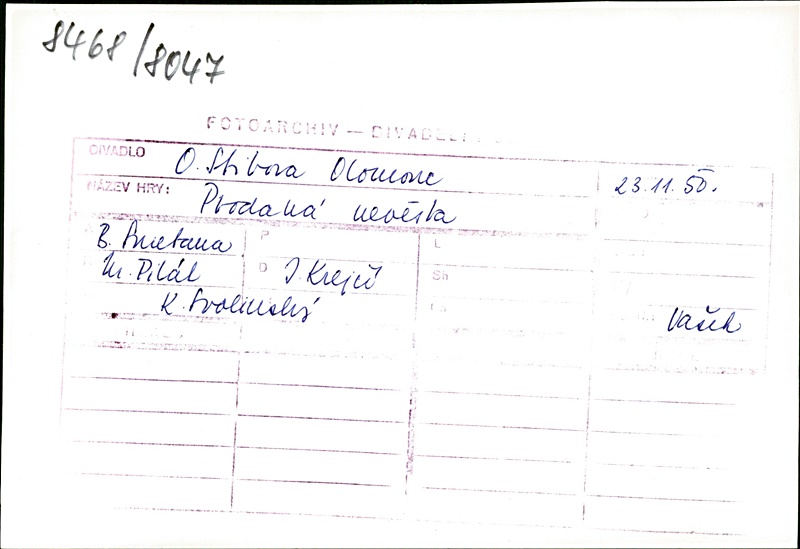 8468/8047
FOTOARCHIV — DIVADELNÍ
DIVADLO O. Stibora Olomouc 23.11.50.
NÁZEV HRY: Prodaná nevěsta
B. Smetana P L
M. Pilát D I. Krejčí Sh
K. Svolinský
Vašek